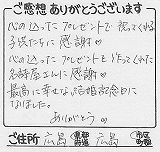 ご感想 ありがとうございます
心の込ったプレゼントで祝ってくれる
子供たちに感謝♡
心の込ったプレゼントを作ってくれた
名詩屋さんに感謝♡
最高に幸せな結婚記念日に
なりました。
ありがとう♡
ご住所 広島 都道府県 広島 市区町村